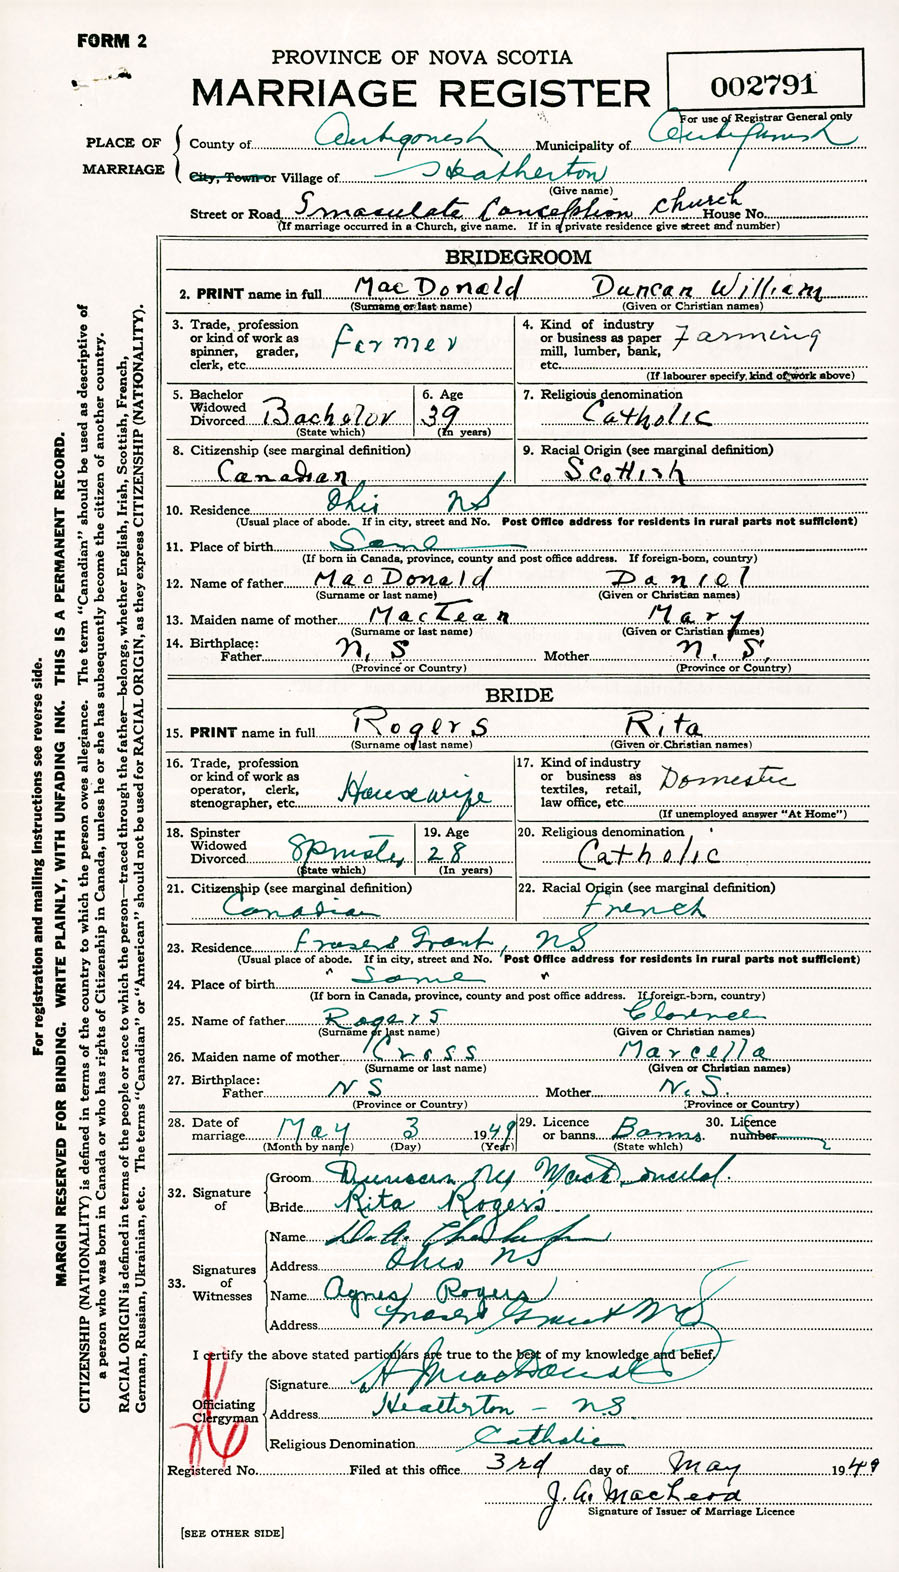 FORM 2
PROVINCE OF NOVA SCOTIA
MARRIAGE REGISTER
002791
For use of Registrar General only
PLACE OF MARRIAGE
County of Antigonish Municipality of Antigonish
City, Town or Village of Heatherton
(Give name)
Street or Road Imaculate Conception Church House No.
(If marriage occurred in a Church, give name. If in a private residence give street and number)
BRIDEGROOM
2. PRINT name in full MacDonald Duncan William
(Surname or last name) (Given or Christian names)
3. Trade, profession or kind of work as spinner, grader, clerk, etc. Farmer
4. Kind of industry or business as paper mill, lumber, bank, etc. Farming
(If labourer specify kind of work above)
5. Bachelor Widowed Divorced Bachelor
(State which)
6. Age 39
(In years)
7. Religious denomination Catholic
8. Citizenship (see marginal definition) Canadian
9. Racial Origin (see marginal definition) Scottish
10. Residence Ohio NS
(Usual place of abode. If in city, street and No. Post Office address for residents in rural parts not sufficient)
11. Place of birth Same
(If born in Canada, province, county and post office address. If foreign-born, country)
12. Name of father MacDonald Daniel
(Surname or last name) (Given or Christian names)
13. Maiden name of mother MacLean Mary
(Surname or last name) (Given or Christian names)
14. Birthplace: Father N. S Mother N. S.
(Province or Country) (Province or Country)
BRIDE
15. PRINT name in full Rogers Rita
(Surname or last name) (Given or Christian names)
16. Trade, profession or kind of work as operator, clerk, stenographer, etc. Housewife
17. Kind of industry or business as textiles, retail, law office, etc. Domestic
(If unemployed answer "At Home")
18. Spinster Widowed Divorced Spinster
(State which)
19. Age 28
(In years)
20. Religious denomination Catholic
21. Citizenship (see marginal definition) Canadian
22. Racial Origin (see marginal definition) French
23. Residence Frasers Grant, NS
(Usual place of abode. If in city, street and No. Post Office address for residents in rural parts not sufficient)
24. Place of birth " Same "
(If born in Canada, province, county and post office address. If foreign-born, country)
25. Name of father Rogers Clarence
(Surname or last name) (Given or Christian names)
26. Maiden name of mother Cross Marcella
(Surname or last name) (Given or Christian names)
27. Birthplace: Father N S Mother N. S.
(Province or Country) (Province or Country)
28. Date of marriage May 3 1949
(Month by name) (Day) (Year)
29. Licence or banns Banns.
(State which)
30. Licence number
32. Signature of
Groom Duncan W MacDonald.
Bride Rita Rogers
33. Signatures of Witnesses
Name D. A.
Address Ohio NS
Name Agnes Rogers
Address Frasers Grant NS
I certify the above stated particulars are true to the best of my knowledge and belief,
Officiating Clergyman
Signature H MacDonald
Address Heatherton - N.S
Religious Denomination Catholic
Registered No. Filed at this office 3rd day of May 1949
J. A. MacLeod
Signature of Issuer of Marriage Licence
[SEE OTHER SIDE]
For registration and mailing instructions see reverse side.
MARGIN RESERVED FOR BINDING. WRITE PLAINLY, WITH UNFADING INK. THIS IS A PERMANENT RECORD.
CITIZENSHIP (NATIONALITY) is defined in terms of the country to which the person owes allegiance. The term "Canadian" should be used as descriptive of
a person who was born in Canada or who has rights of Citizenship in Canada, unless he or she has subsequently become the citizen of another country.
RACIAL ORIGIN is defined in terms of the people or race to which the person—traced through the father—belongs, whether English, Irish, Scottish, French,
German, Russian, Ukrainian, etc. The terms "Canadian" or "American" should not be used for RACIAL ORIGIN, as they express CITIZENSHIP (NATIONALITY).